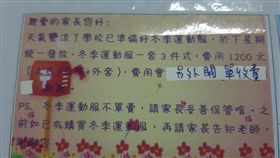 親愛的家長您好:
天氣變涼了學校已準備好冬季運動服,於下星期
統一發放,冬季運動服一套3件式,費用1200元
外套),費用會 另外開單收費
PS.冬季運動服不單賣,請家長妥善保管唷,之
前如已有購買冬季運動服,再請家長告知老師